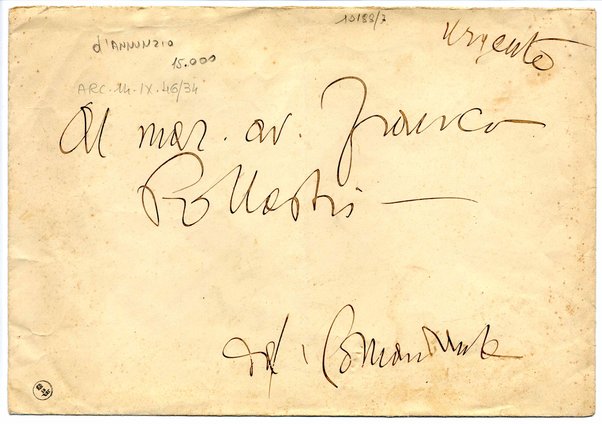 10188/2
urgente
d'ANNUNZIO
15.000
ARC. 14. IX. 46/34
Al mar. av. Franco
Pollastri
dal Comandante